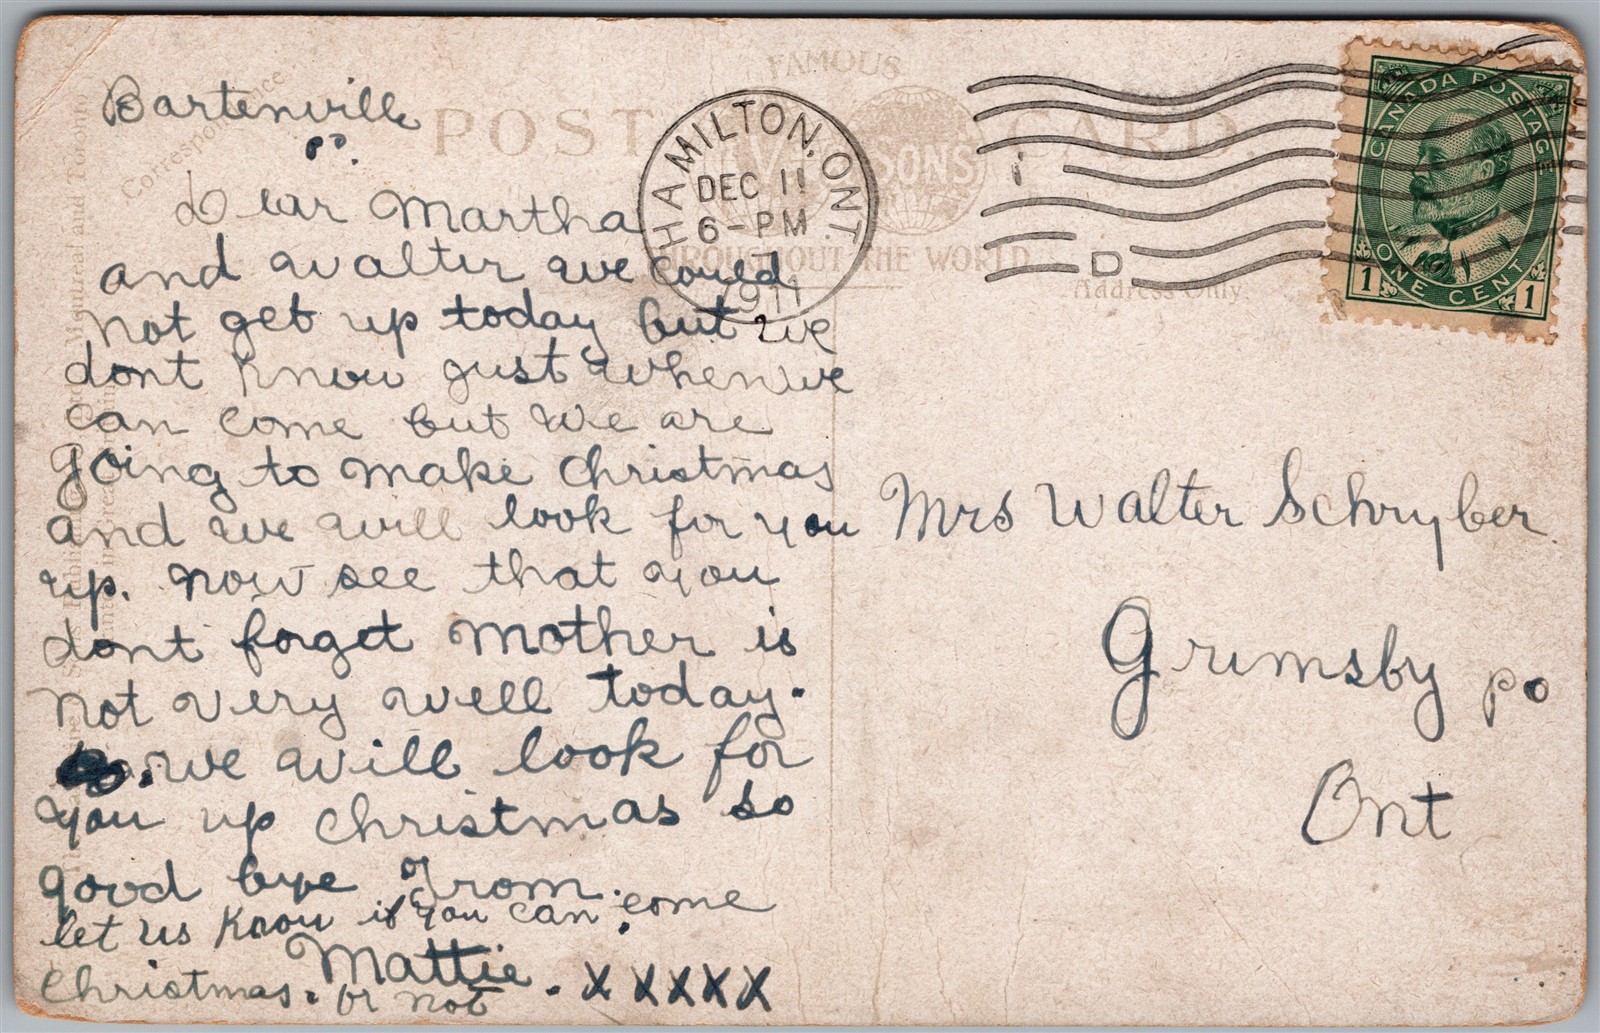 Bartenville
po.
Dear Martha
and Walter we could
not get up today but we
dont know just when we
can come but we are
going to make christmas
and we will look for you
up. now see that you
dont forget mother is
not very well today.
we will look for
you up christmas so
good bye From.
let us know if you can come
Mattie. x x x x x
christmas. or not
Correspondence
FAMOUS
POST CARD
SONS
THROUGHOUT THE WORLD
Address Only
HAMILTON, ONT.
DEC 11
6-PM
1911
D
CANADA POSTAGE
ONE CENT
1 1
Mrs Walter Schryber
Grimsby po
Ont
Montreal and Toronto